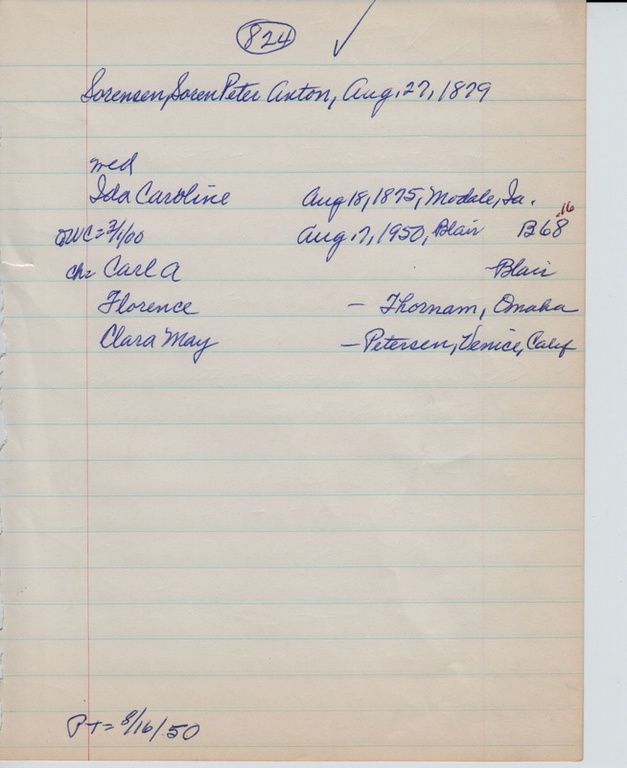 824 ✓
Sorensen, Soren Peter Anton, Aug. 27, 1879
med
Ida Caroline Aug 18, 1875, Modale, Ia.
.16
=3/1/00 Aug. 7, 1950, Blair B68
ch= Carl A -Blair
Florence - Thornam, Omaha
Clara May - Petersen, Venice, Calif
PT= 8/16/50